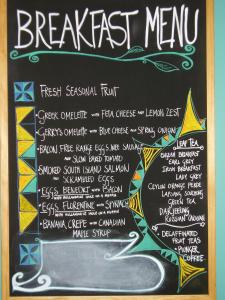 BREAKFAST MENU
FRESH SEASONAL FRUIT
GREEK OMELETTE WITH FETA CHEESE AND LEMON ZEST
GERRY'S OMELETTE WITH BLUE CHEESE AND SPRING ONION
BACON, FREE RANGE EGGS, NZ SAUSAGE
AND SLOW BAKED TOMATO
SMOKED SOUTH ISLAND SALMON
AND SCRAMBLED EGGS
EGGS BENEDICT WITH BACON
WITH HOLLANDAISE SAUCE ON A MUFFIN
EGGS FLORENTINE WITH SPINACH
WITH HOLLANDAISE SAUCE ON A MUFFIN
BANANA CREPE WITH CANADIAN
MAPLE SYRUP
LEAF TEA
ENGLISH BREAKFAST
EARL GREY
IRISH BREAKFAST
LADY GREY
CEYLON ORANGE PEKOE
LAPSANG SOUCHONG
GREEN TEA
DARJEELING
RUSSIAN CARAVAN
OR
DECAFFINATED
FRUIT TEAS
PLUNGER
COFFEE